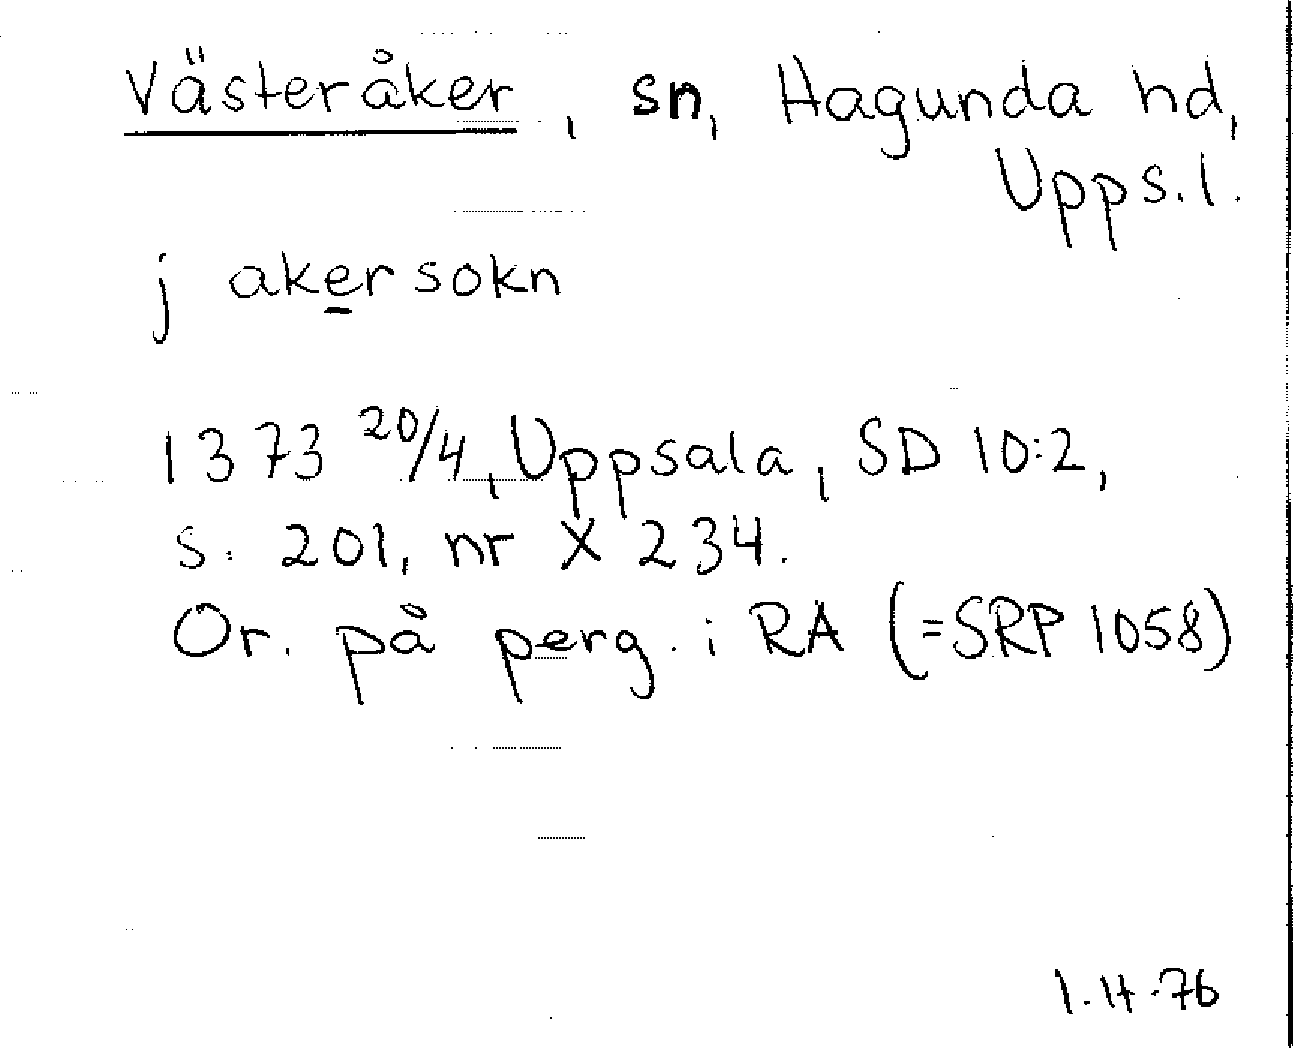 Västeråker, sn, Hagunda hd,
Upps.l.
j akersokn
1373 20/4, Uppsala, SD 10:2,
s. 201, nr X 234.
Or. på perg. i RA (=SRP 1058)